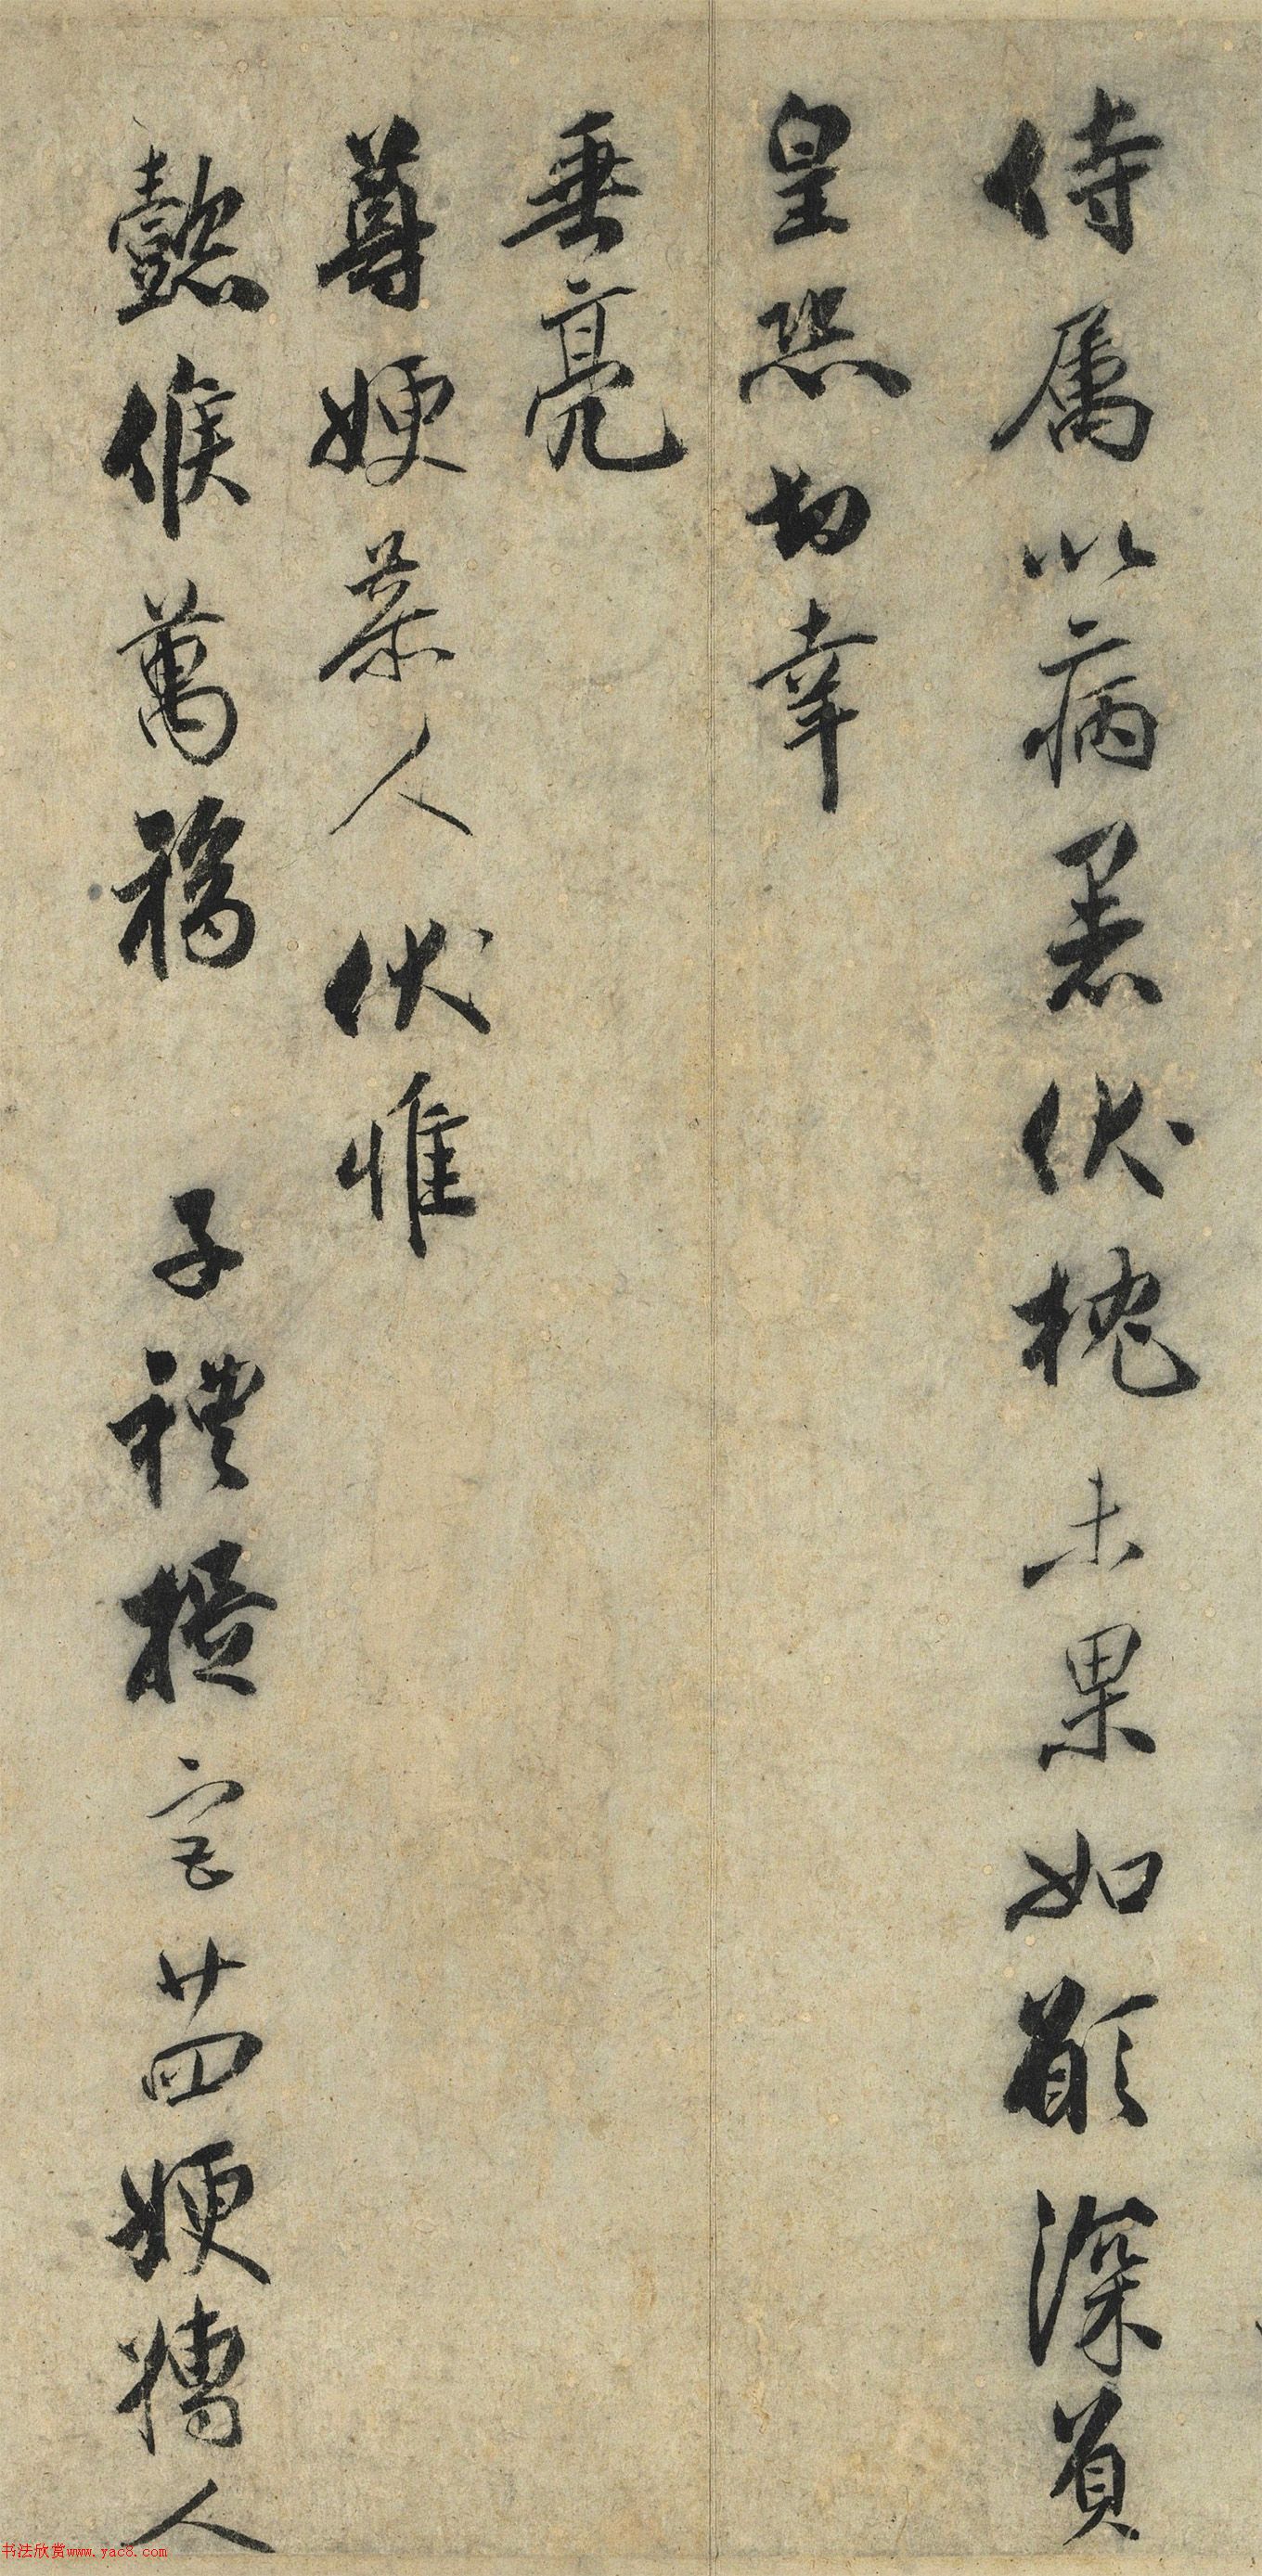 侍属以病恙伏枕未果如願深負
皇恐切幸
垂亮
尊嫂恭人伏惟
懿候萬福 子禮提宫廿四嫂孺人
书法欣赏www.yac8.com